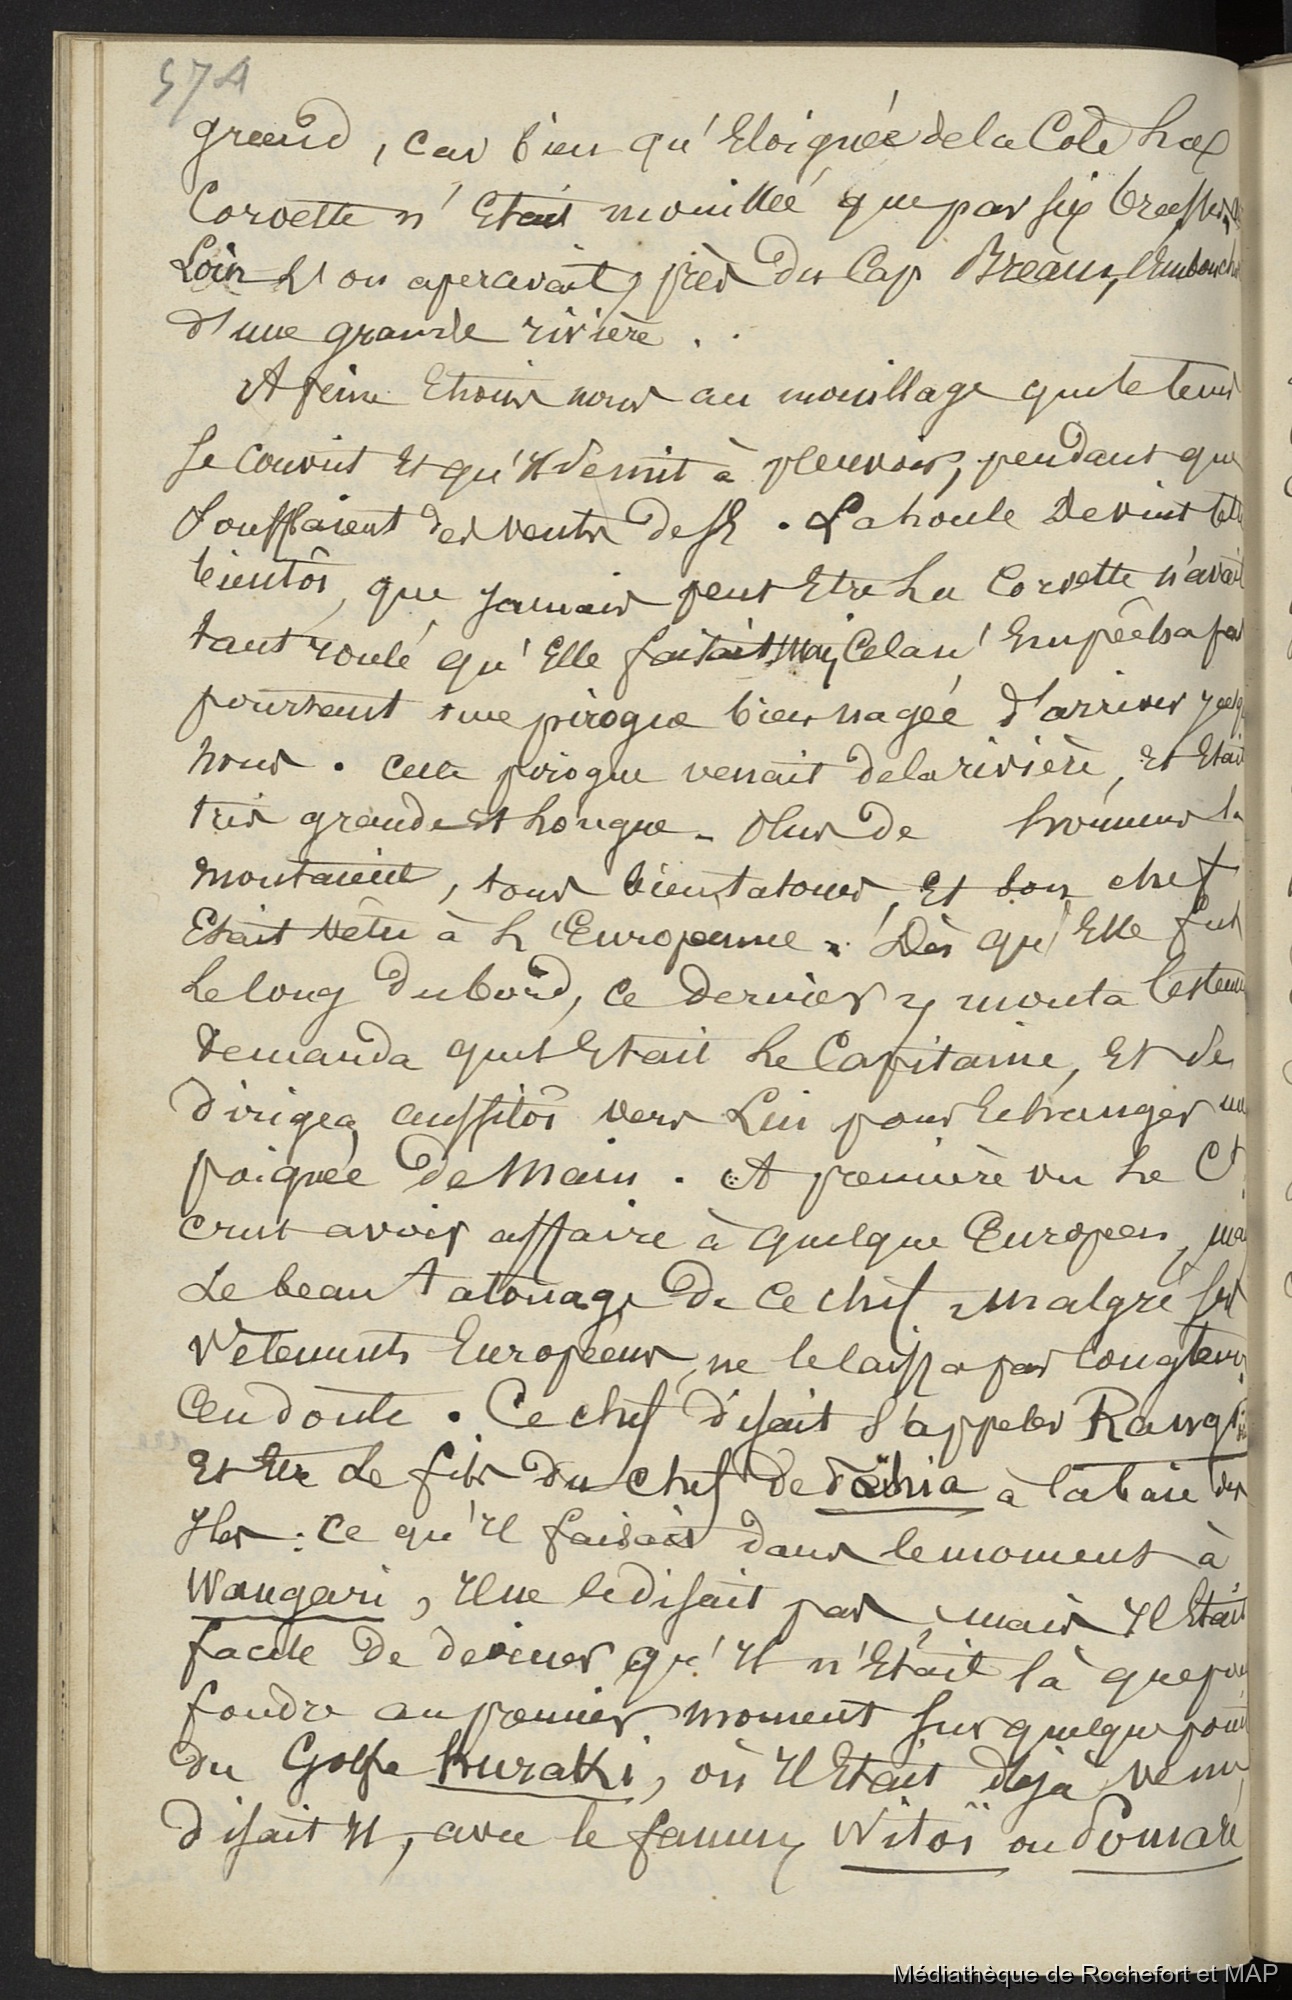 574
grand, car bien qu'Eloignée de la Cote La
Corvette n'Etait mouillée que par six brasses
Loin L'on apercevait, près du Cap Bream, l'Embouch
d'une grande rivière.
A peine Etions nous au mouillage que le tems
se couvrit Et qu'Il se mit à pleuvoir, pendant que
soufflaient des vents de SE. La houle devint telle
bientôt, que jamais peut Etre La Corvette n'avait
tant roulé qu'Elle faisait, Mais, Cela n'Empêcha pas
pourtant une pirogue bien nagée d'arriver jusqu
nous. Cette pirogue venait de la rivière, et Etait
très grande Et Longue - Plus de hommes la
montaient, tous bien tatoués, Et son chef
Etait vêtu à L'Européenne. Dès qu'Elle fut
Le long du bord, ce dernier y monta lestem
demanda quel Etait Le Capitaine, Et se
dirigea aussitôt vers Lui pour Echanger une
poignée de Main. A première vu Le Ct
crut avoir affaire à quelque Européen, mais
Le beau tatouage de ce chef, Malgré ses
Vêtements Européens, ne le laissa pas longtems
En doute. Ce chef disait s'appeler Rangi
Et Etre Le fils du chef de à la baie des
Iles: ce qu'Il faisait dans le moment à
Wangari, Il ne le disait pas, mais Il Etait
facile de deviner qu'Il n'Etait là que pour
fondre au premier moment sur quelque point
du Golfe Kuraki, où Il Etait déjà venu,
disait Il, avec le fameux Witoï ou Pomare
Médiathèque de Rochefort et MAP